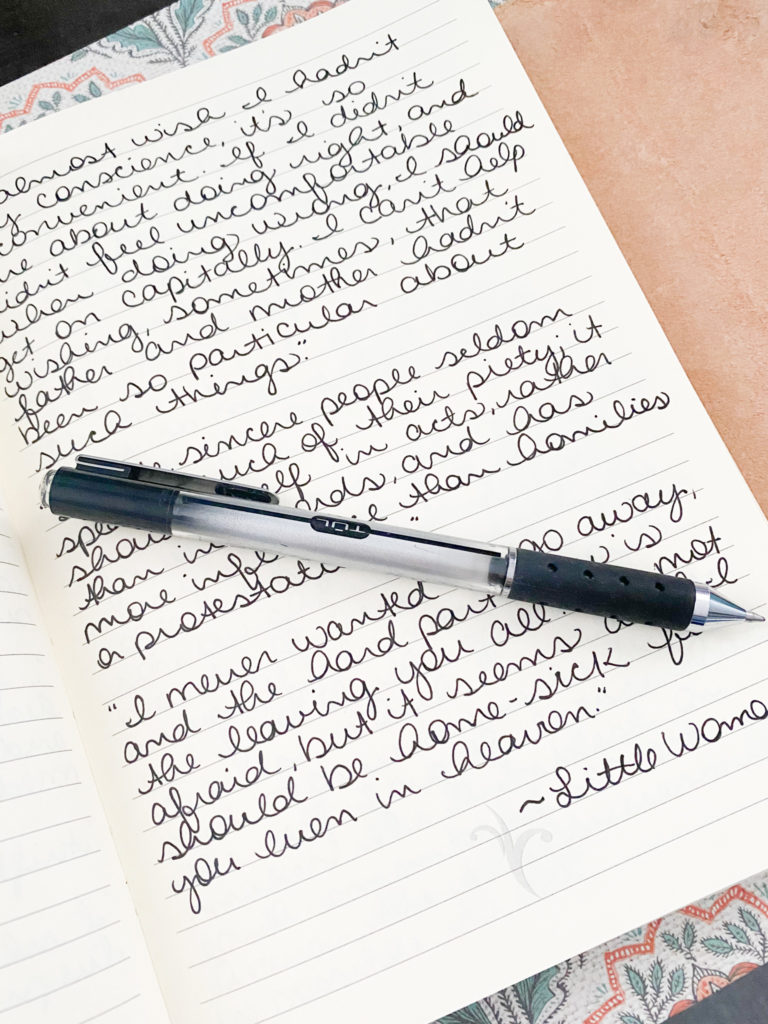 almost wish I hadn't
y conscience, it's so
convenient. If I didn't
re about doing right, and
didn't feel uncomfortable
when doing wrong, I should
get on capitally. I can't help
wishing, sometimes, that
father and mother hadn't
been so particular about
such things."
sincere people seldom
uch of their piety; it
itself in acts, rather
than in words, and has
more than homilies
a protestati "
"I never wanted go away,
and the hard part is
the leaving you all. not
afraid, but it seems
should be home-sick
you even in heaven."
~Little Wome
TUL